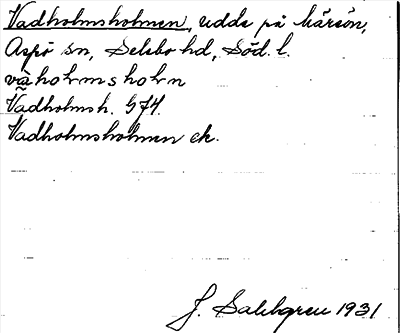 Vadholmsholmen, udde på Märsön,
Aspö sn, Selebo hd, Söd. l.
vaholmsholm
Vadholmsh. G74.
Vadholmsholmen ek.
J. Sahlgren 1931